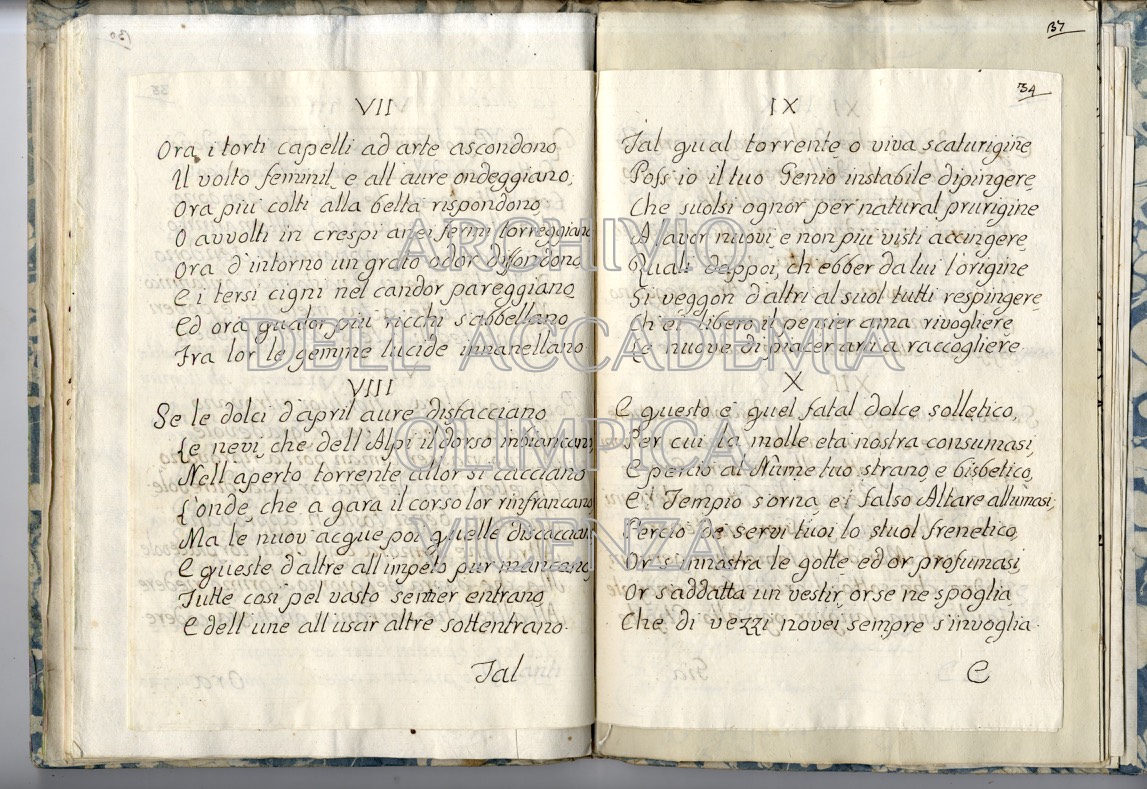 VII
Ora i torti capelli ad arte ascondono
Il volto feminil, e all'aure ondeggiano;
Ora più colti alla beltà rispondono
O avvolti in crespi anei fermi torreggiano
Ora d'intorno un grato odor diffondono
E i tersi cigni nel candor pareggiano
Ed ora qualor più ricchi s'abbellano
Fra lor le gemme lucide innanellano
VIII
Se le dolci d'april aure disfacciano
Le nevi, che dell'Alpi il dorso inbiancano,
Nell'aperto torrente allor si cacciano
L'onde, che a gara il corso lor rinfrancano
Ma le nuov'acque poi quelle discacciano
E queste d'altre all'impeto pur mancano,
Tutte così pel vasto sentier entrano
E dell'une all'uscir altre sottentrano.
Tal
137
134
IX
Tal qual torrente o viva scaturigine
Poss'io il tuo Genio instabile dipingere
Che suolsi ognor per natural prurigine
A favor nuovi, e non più visti accingere
Quali dappoi, ch'ebber da lui l'origine
Si veggon d'altri al suol tutti respingere
Ch'ei libero il pensier ama rivogliere
Le nuove di piacer arti a raccogliere
X
E questo è quel fatal dolce solletico,
Per cui la molle età nostra consumasi,
E perciò al Nume tuo strano e bisbetico
E il Tempio s'orna, e i falso Altare allumasi;
Perciò de' servi tuoi lo stuol frenetico
Or s'innostra le gotte ed or profumasi,
Or s'addatta un vestir, or se ne spoglia
Che di vezzi novei sempre s'invoglia.
E
ARCHIVIO
DELL'ACCADEMIA
OLIMPICA
VICENZA